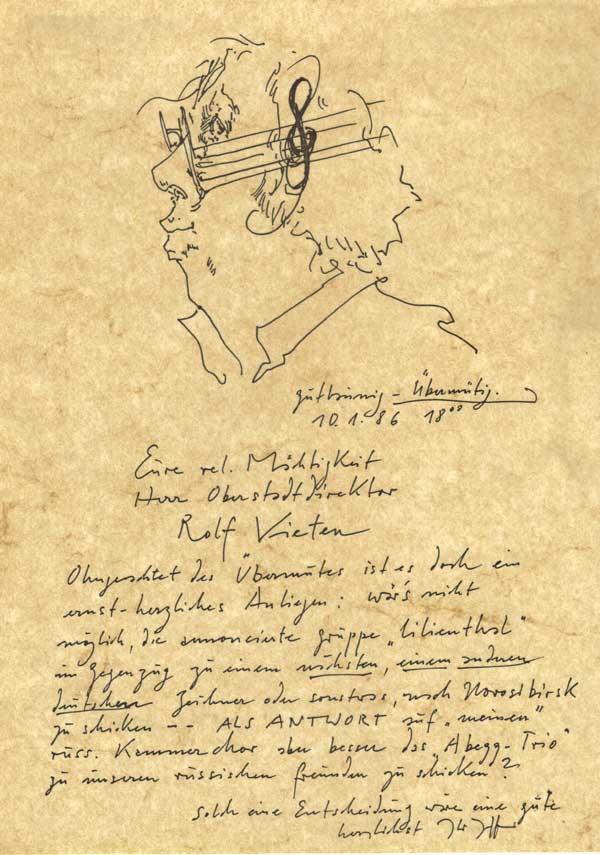 gutlaunig - Übermütig.
10.1.86 18ºº
Eure rel. Mächtigkeit
Herr Oberstadtdirektor
Rolf Vieten
Ohngeachtet des Übermutes ist es doch ein
ernst-herzliches Anliegen: wär's nicht
möglich, die annoncierte Gruppe "Lilienthal"
im Gegenzug zu einem nächsten, einem anderen
deutschen Zeichner oder sonstwas, nach Novosibirsk
zu schicken -- ALS ANTWORT auf „meinen"
russ. Kammerchor aber besser das „Abegg-Trio"
zu unseren russischen Freunden zu schicken?
Solch eine Entscheidung wäre eine gute
herzlichst